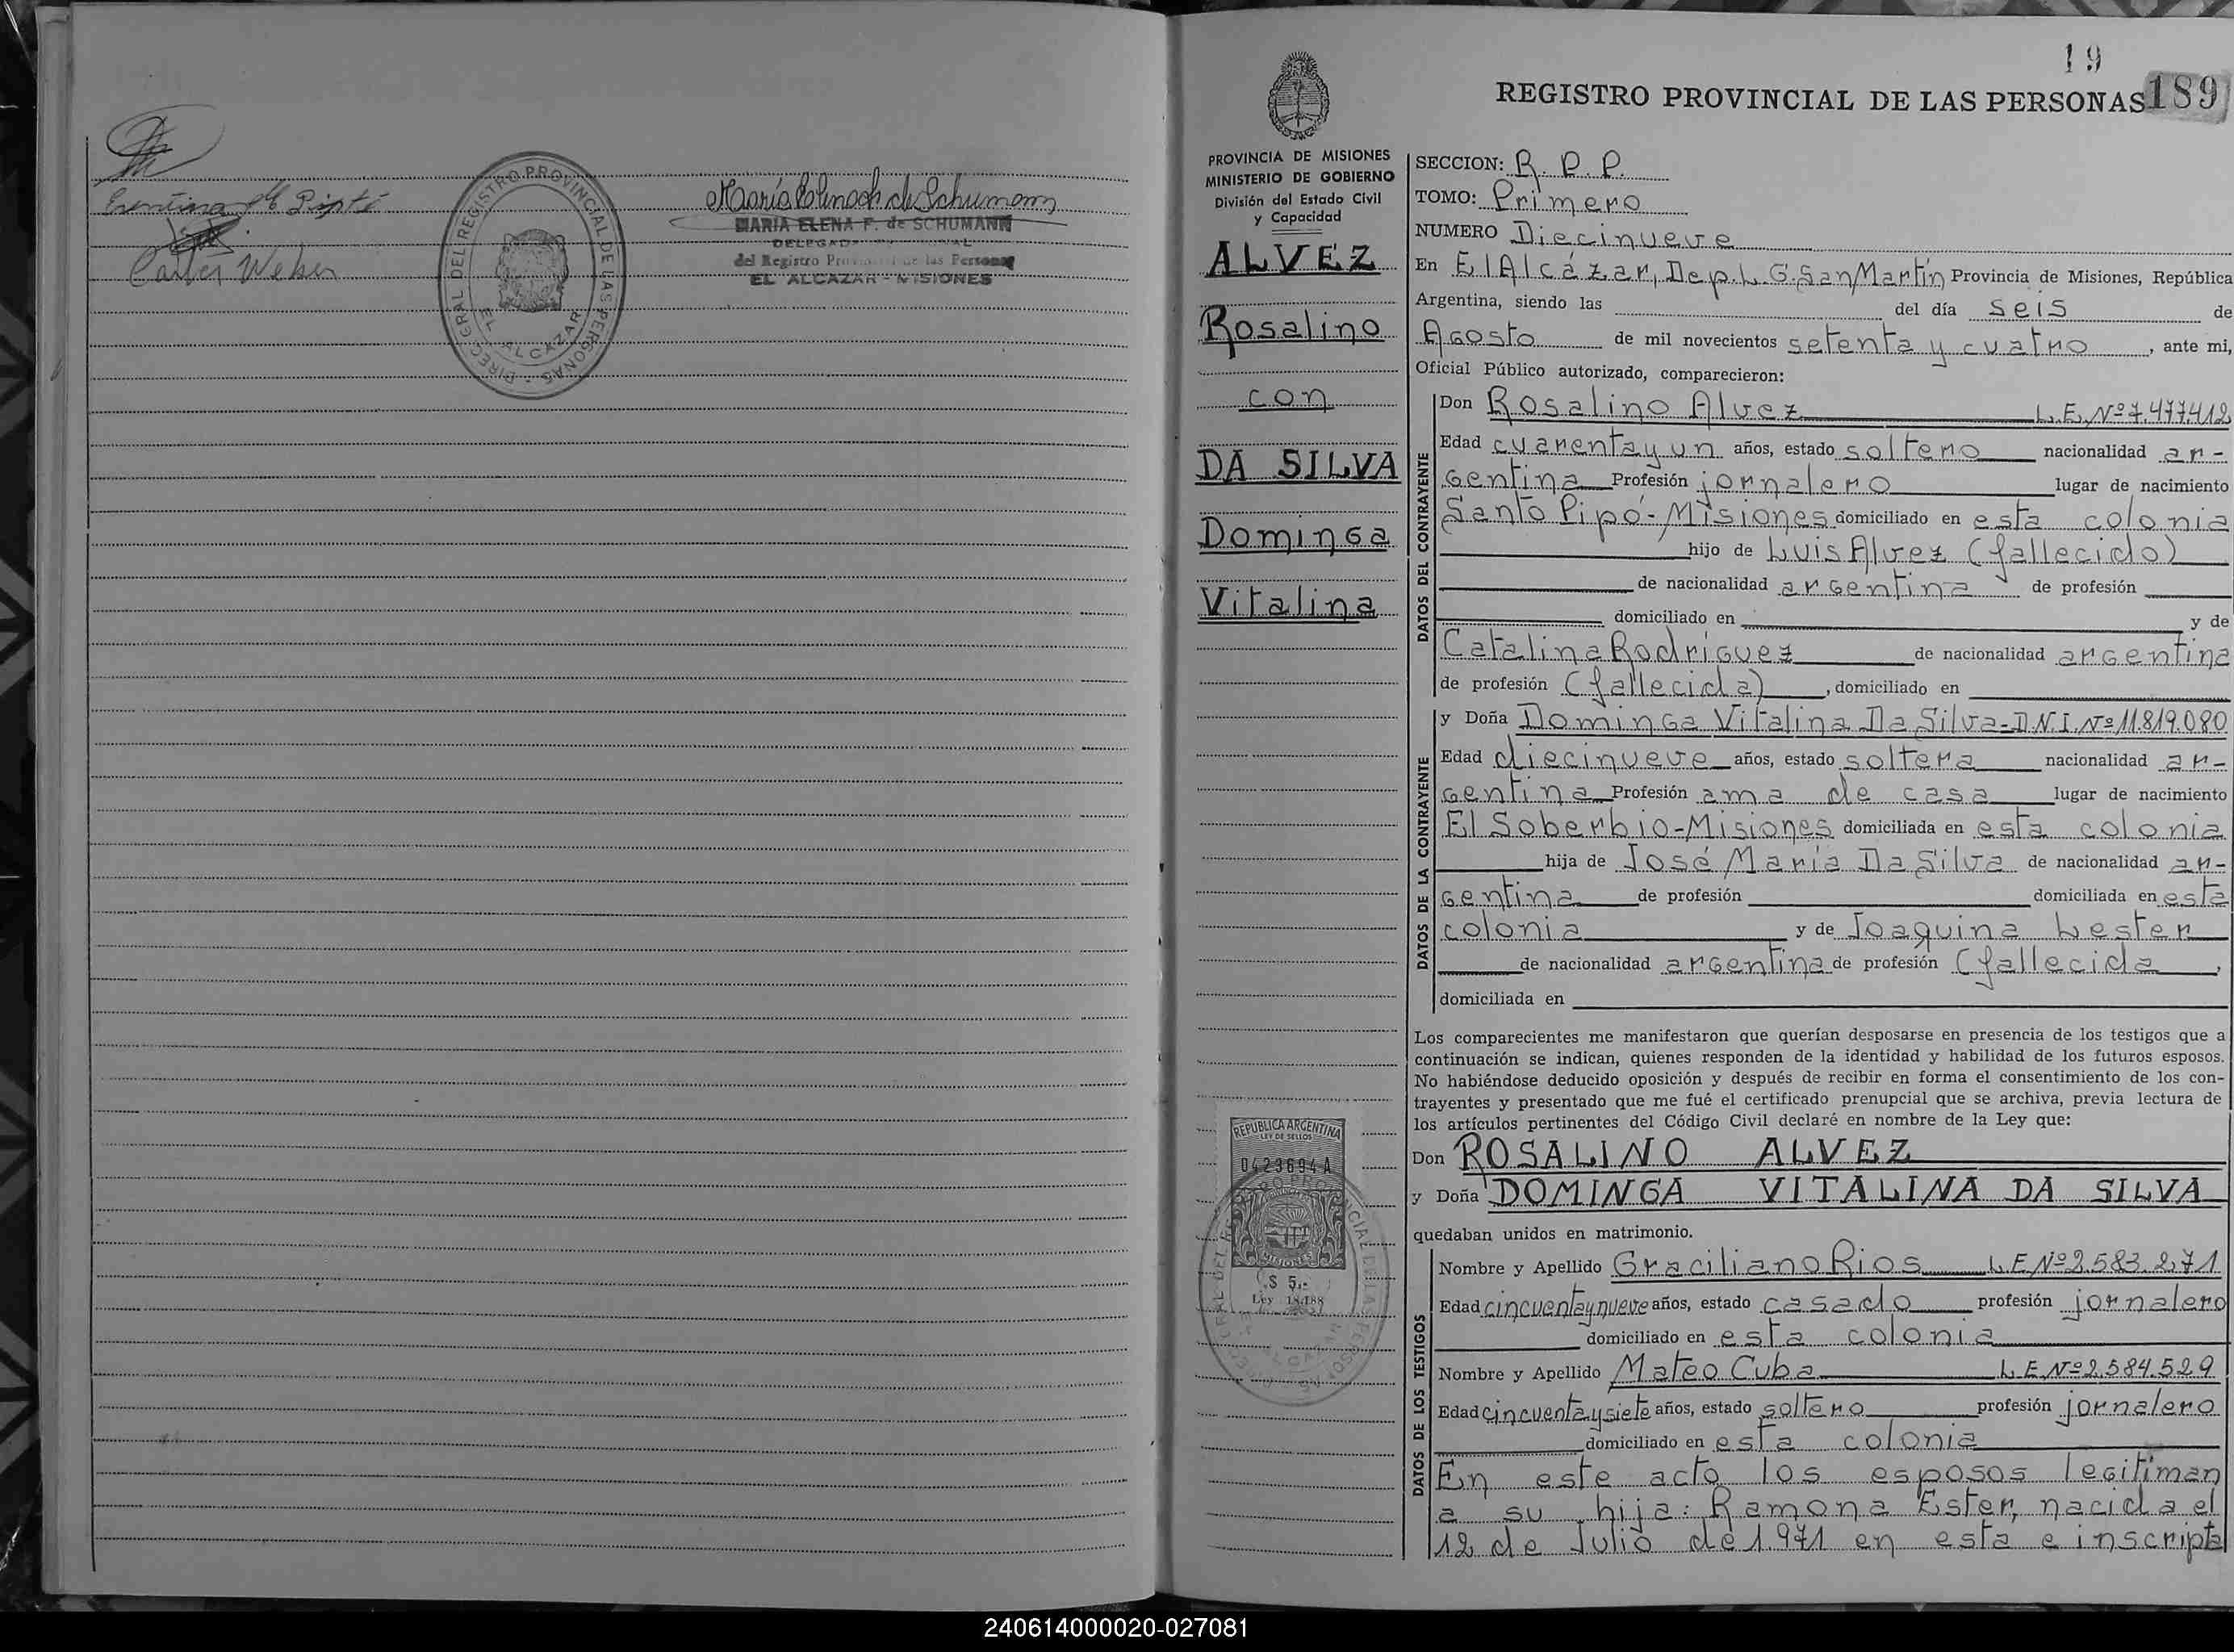 DIREC. GRAL DEL REGISTRO PROVINCIAL DE LAS PERSONAS
EL ALCAZAR
MARIA ELENA F. de SCHUMANN
del Registro las Personas
EL ALCAZAR - MISIONES
Weber
19
REGISTRO PROVINCIAL DE LAS PERSONAS 189
PROVINCIA DE MISIONES
MINISTERIO DE GOBIERNO
División del Estado Civil
y Capacidad
ALVEZ
Rosalino
con
DA SILVA
Dominga
Vitalina
REPUBLICA ARGENTINA
LEY DE SELLOS
0423694 A
MISIONES
$ 5.-
Ley 18.188
SECCION: R. P. P.
TOMO: Primero
NUMERO Diecinueve
En El Alcázar, Dep. L. G. San Martín Provincia de Misiones, República
Argentina, siendo las del día seis de
Agosto de mil novecientos setenta y cuatro, ante mi,
Oficial Público autorizado, comparecieron:
DATOS DEL CONTRAYENTE
Don Rosalino Alvez L.E. Nº 7.477.412
Edad cuarenta y un años, estado soltero nacionalidad ar-
gentina Profesión jornalero lugar de nacimiento
Santo Pipó - Misiones domiciliado en esta colonia
hijo de Luis Alvez (fallecido)
de nacionalidad argentina de profesión
domiciliado en y de
Catalina Rodríguez de nacionalidad argentina
de profesión (fallecida), domiciliado en
DATOS DE LA CONTRAYENTE
y Doña Dominga Vitalina Da Silva - D.N.I. Nº 11.819.080
Edad diecinueve años, estado soltera nacionalidad ar-
gentina Profesión ama de casa lugar de nacimiento
El Soberbio - Misiones domiciliada en esta colonia
hija de José María Da Silva de nacionalidad ar-
gentina de profesión domiciliada en esta
colonia y de Joaquina Lester
de nacionalidad argentina de profesión (fallecida,
domiciliada en
Los comparecientes me manifestaron que querían desposarse en presencia de los testigos que a
continuación se indican, quienes responden de la identidad y habilidad de los futuros esposos.
No habiéndose deducido oposición y después de recibir en forma el consentimiento de los con-
trayentes y presentado que me fué el certificado prenupcial que se archiva, previa lectura de
los artículos pertinentes del Código Civil declaré en nombre de la Ley que:
Don ROSALINO ALVEZ
y Doña DOMINGA VITALINA DA SILVA
quedaban unidos en matrimonio.
DATOS DE LOS TESTIGOS
Nombre y Apellido Graciliano Rios L.E Nº 2.583.271
Edad cincuenta y nueve años, estado casado profesión jornalero
domiciliado en esta colonia
Nombre y Apellido Mateo Cuba L.E. Nº 2.584.529
Edad cincuenta y siete años, estado soltero profesión jornalero
domiciliado en esta colonia
En este acto los esposos legitiman
a su hija: Ramona Ester, nacida el
12 de Julio de 1.971 en esta e inscripta
240614000020-027081